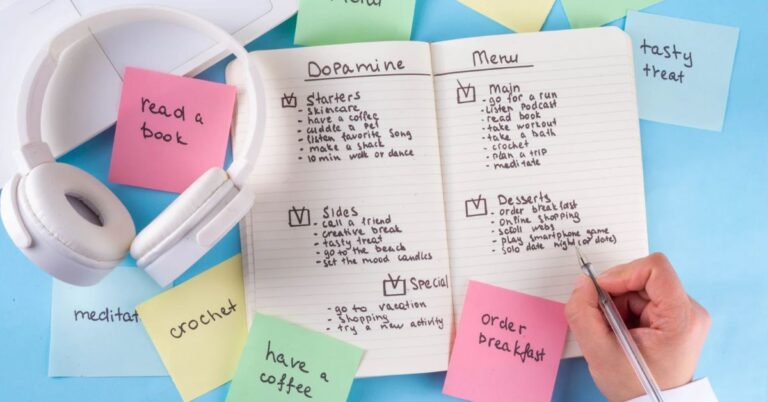 Menu
tasty
treat
read a
book
Dopamine
Starters
- skincare
- have a coffee
- cuddle a pet
- listen favorite song
- make a snack
- 10 min walk or dance
Sides
- call a friend
- creative break
- tasty treat
- go to the beach
- set the mood candles
Special
- go to vacation
- shopping
- try a new activity
Menu
Main
- go for a run
- listen Podcast
- read book
- take workout
- take a bath
- crochet
- plan a trip
- meditate
Desserts
- order breakfast
- online shopping
- scroll webs
- play smartphone game
- solo date night (or date)
meditat
crochet
have a
coffee
order
breakfast